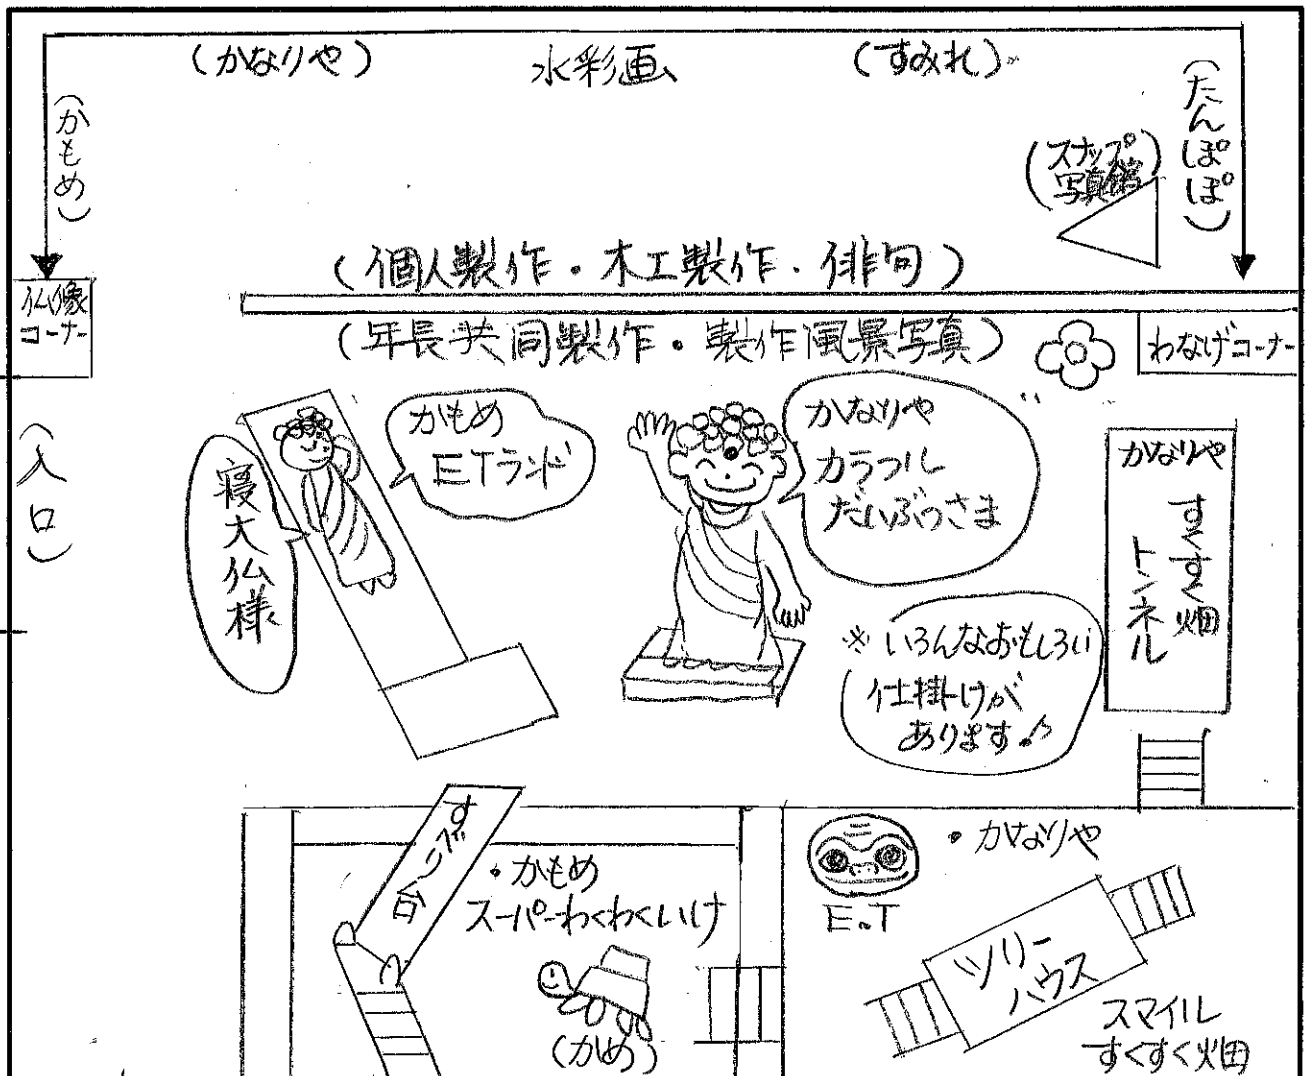 (かなりや)
水彩画
(すみれ)
(たんぽぽ)
(かもめ)
(スナップ
写真館)
(個人製作・木工製作・俳句)
仏像
コーナー
(年長共同製作・製作風景写真)
わなげコーナー
(入口)
寝大仏様
かもめ
ETランド
かなりや
カラフル
だいぶつさま
かなりや
すくすく畑
トンネル
※いろんなおもしろい
仕掛けが
あります♪
すべり台
・かもめ
スーパーわくわくいけ
(かめ)
・かなりや
E.T
ツリー
ハウス
スマイル
すくすく畑